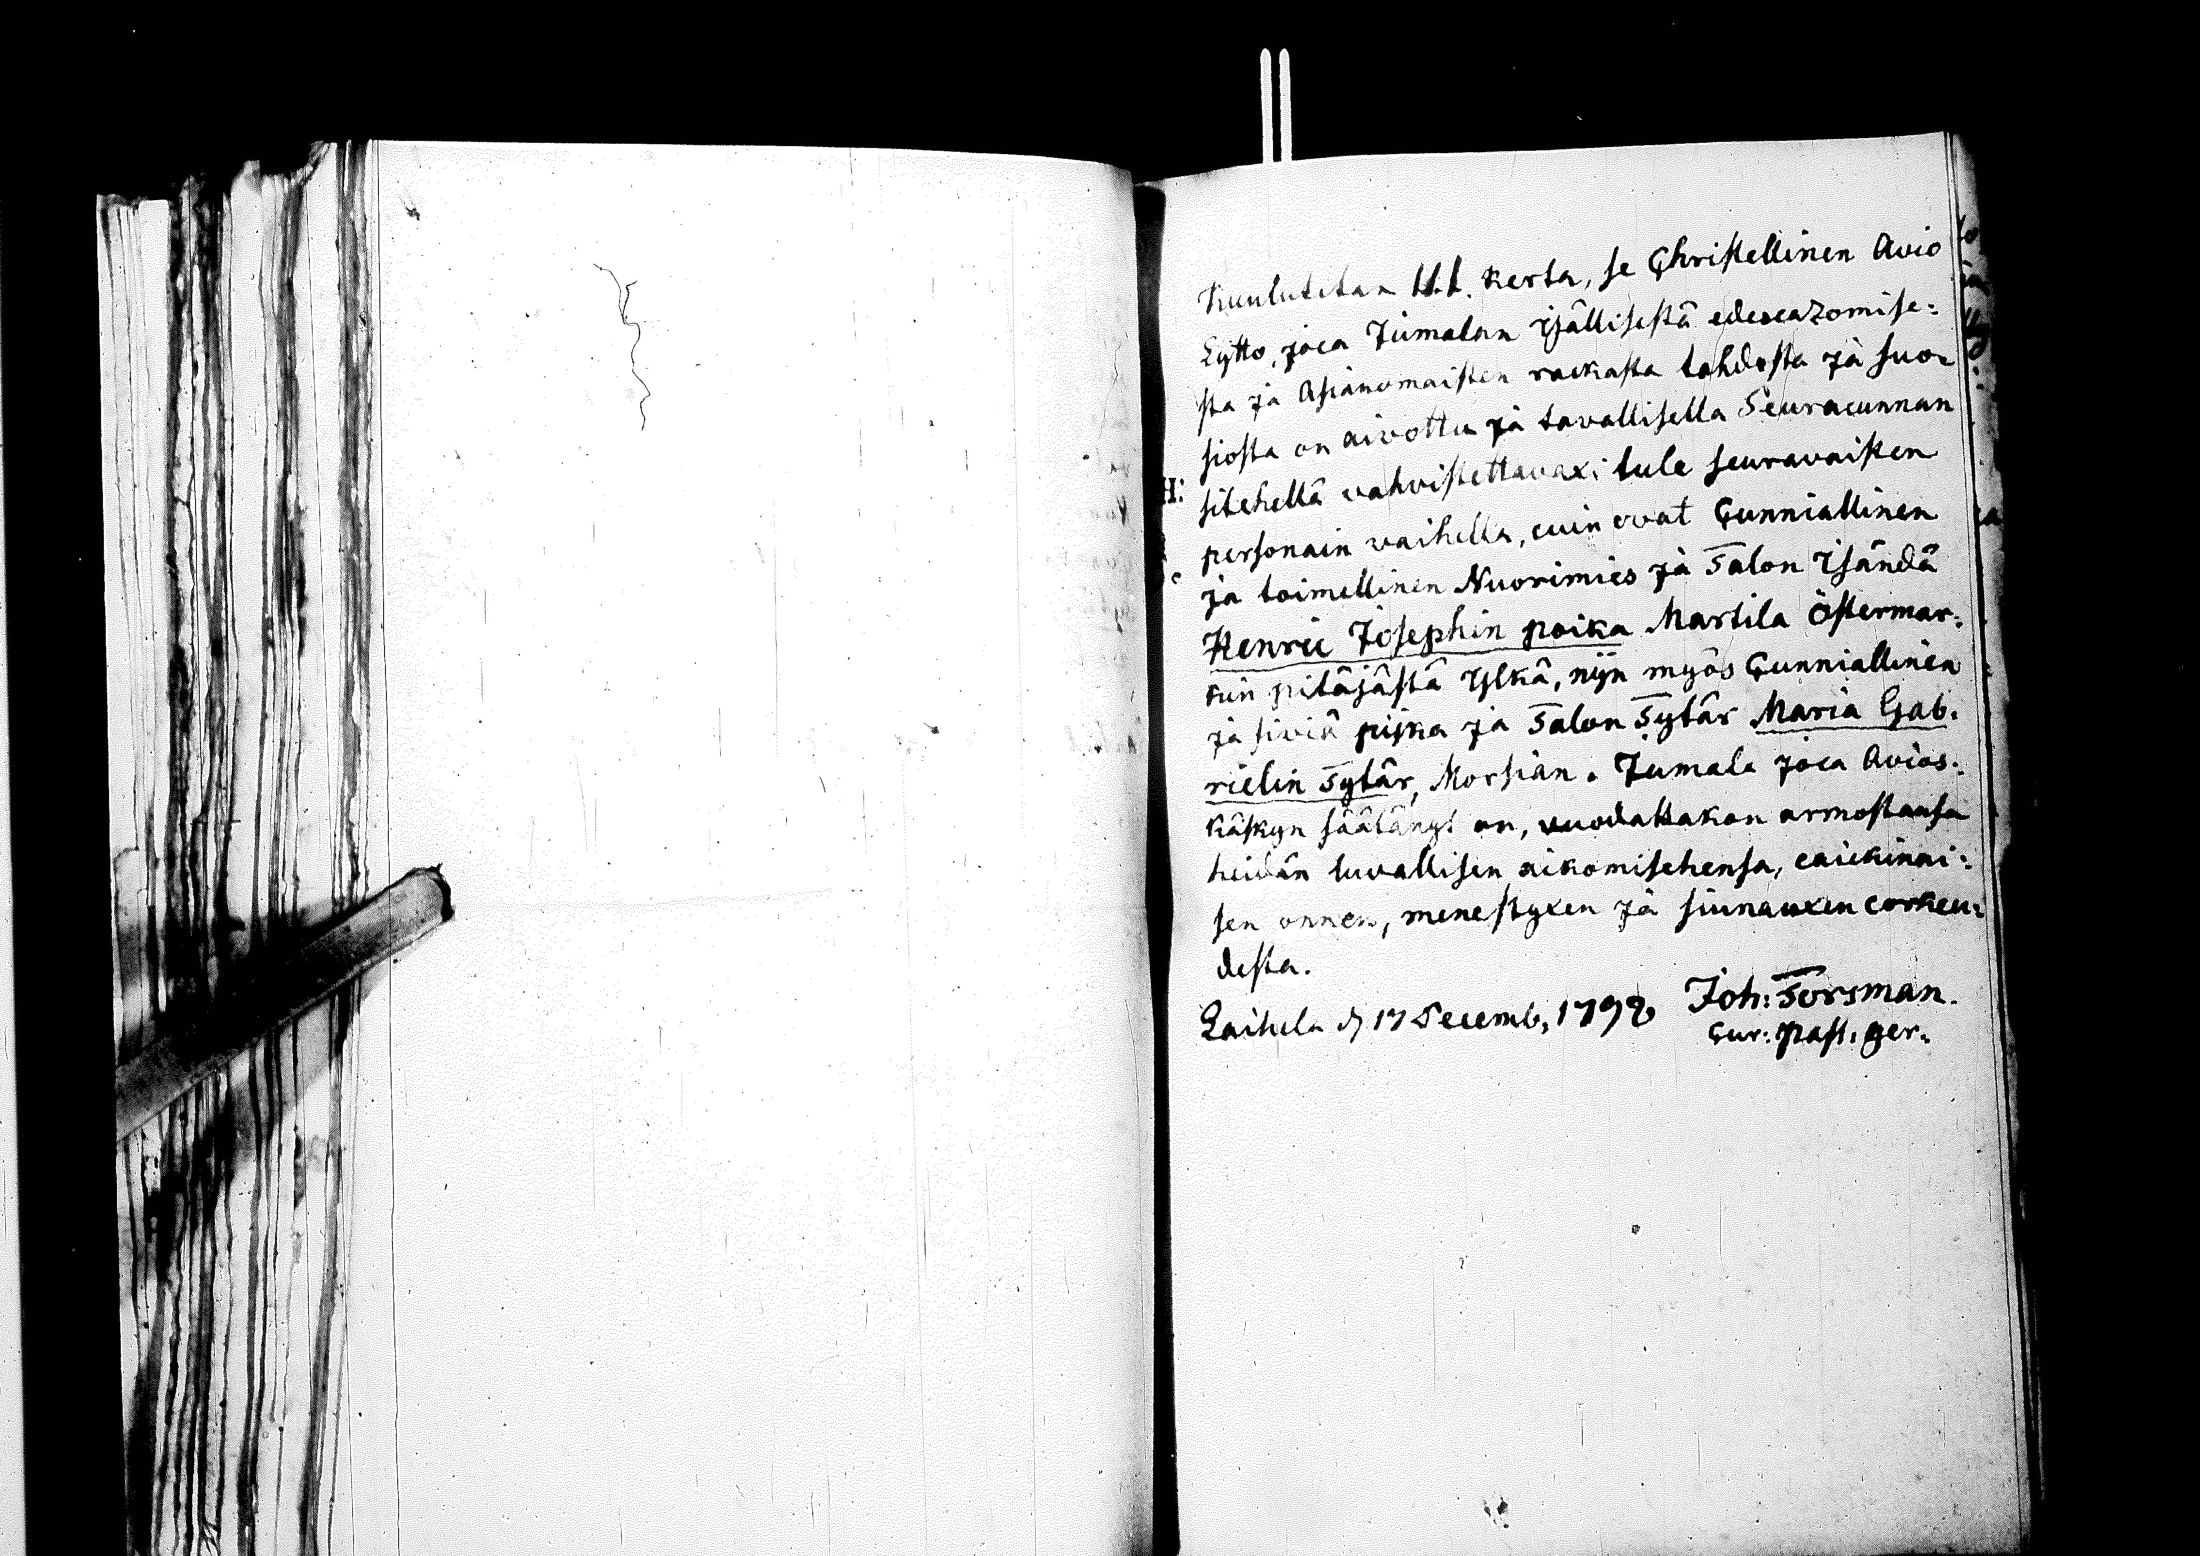 Kuulutetan 1.1. Kerta, se Christellinen Avio
Lytto, joca Jumalan Isällisestä edescazomise:
sta ja Asianomaisten rackasta tahdosta ja suo-
siosta on aivottu ja tavallisella Seuracunnan
sitehellä vahvistettavaxi tule seuravaisten
personain vaihella, cuin ovat Cunniallinen
ja toimellinen Nuorimies ja Talon Isändä
Henric Josephin poika Martila Östermar:
kin pitäjästä Ylkä, nijn myös Cunniallinen
ja siviä pijka ja Talon Tytär Maria Gab:
rielin Tytär, Morsian. Jumala joca Avios:
Käskyn säätänyt on, vuodattakon armostansa
heidän luvallisen aikomisehensa, caickinai:
sen onnen, menestyxen ja siunauxen corkeu:
desta.
Laihela d 17 Decemb, 1792 Joh: Forsman.
Cur: past: ger: